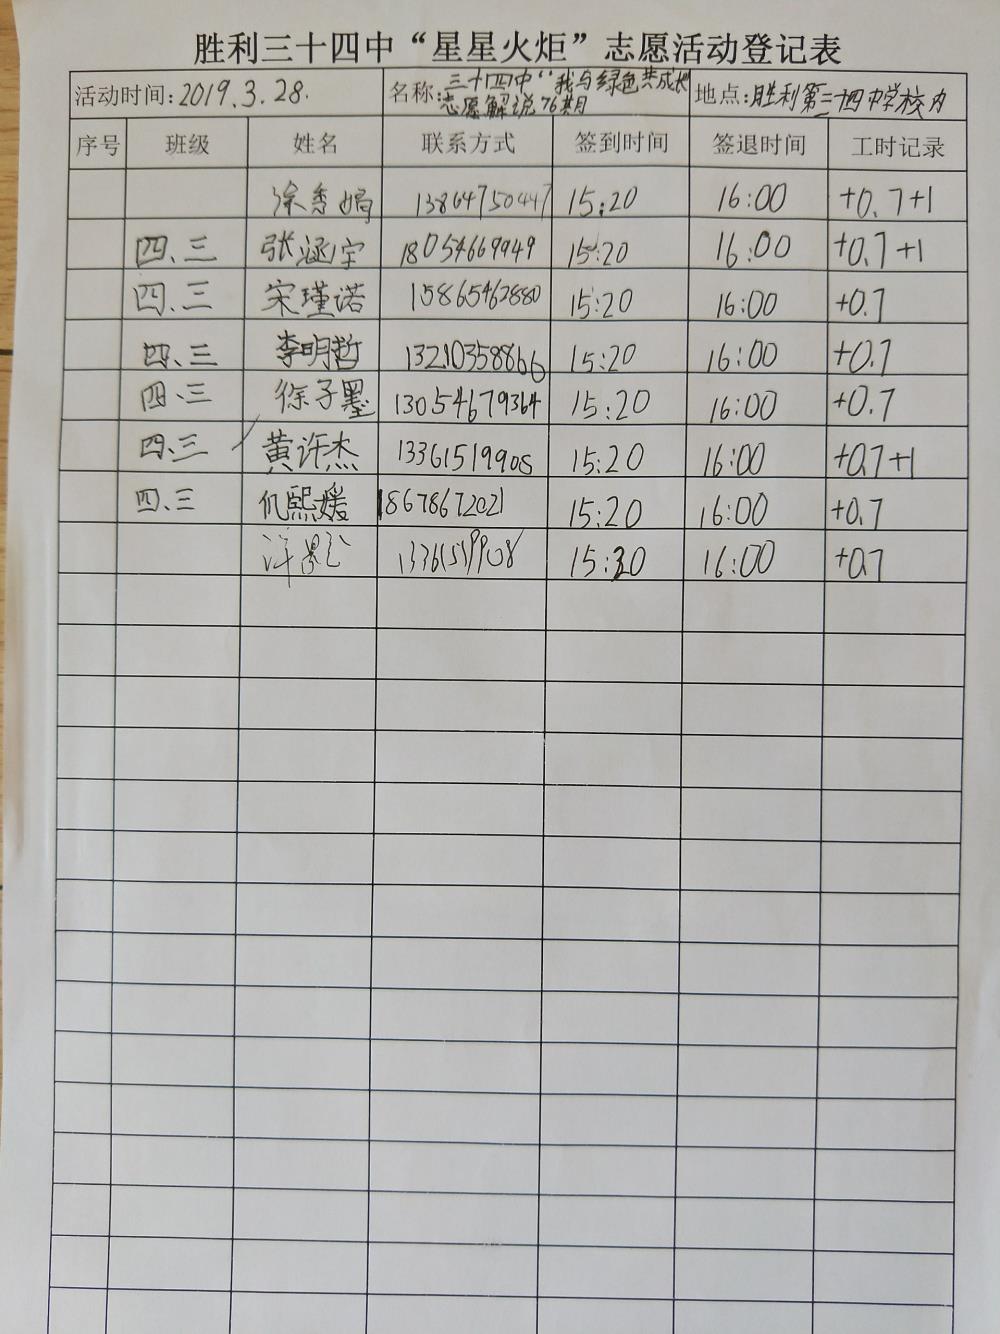 胜利三十四中“星星火炬”志愿活动登记表
活动时间:2019.3.28. 名称:三十四中“我与绿色共成长 地点:胜利第三十四中学校内
志愿解说76共月
序号 班级 姓名 联系方式 签到时间 签退时间 工时记录
涂秀娟 13864750447 15:20 16:00 +0.7+1
四.三 张涵宇 18054669949 15:20 16:00 +0.7+1
四.三 宋瑾诺 15865462880 15:20 16:00 +0.7
四.三 李明哲 13210358866 15:20 16:00 +0.7
四.三 徐子墨 13054679364 15:20 16:00 +0.7
四.三 黄许杰 13361519908 15:20 16:00 +0.7+1
四.三 仉熙媛 18678672021 15:20 16:00 +0.7
13361519908 15:20 16:00 +0.7